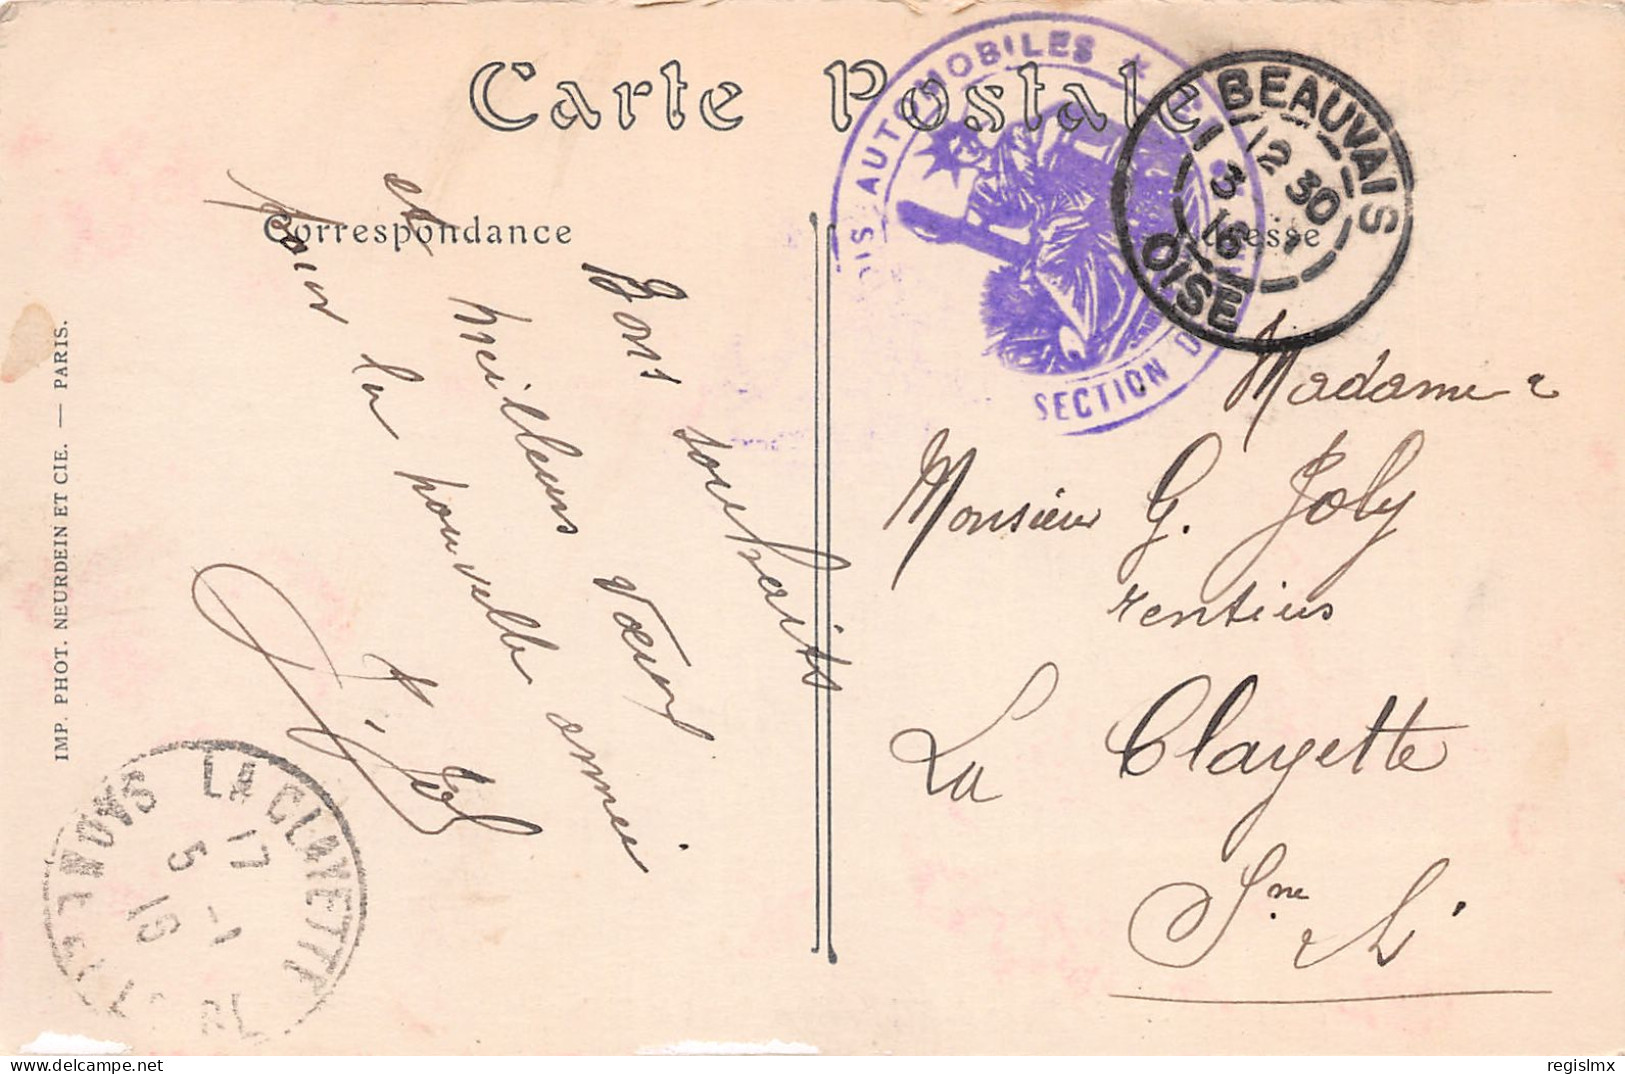 Carte Postale
Correspondance
Bons souhaits
et meilleurs vœux
pour la nouvelle année
IMP. PHOT. NEURDEIN ET CIE. — PARIS.
AUTOMOBILES
SECTION
BEAUVAIS
12 30
3 1
16
OISE
Madame &
Monsieur G. Joly
rentiers
La Clayette
Sne & L.
LA CLAYETTE
17
5 -1
16
SAONE
regislmx